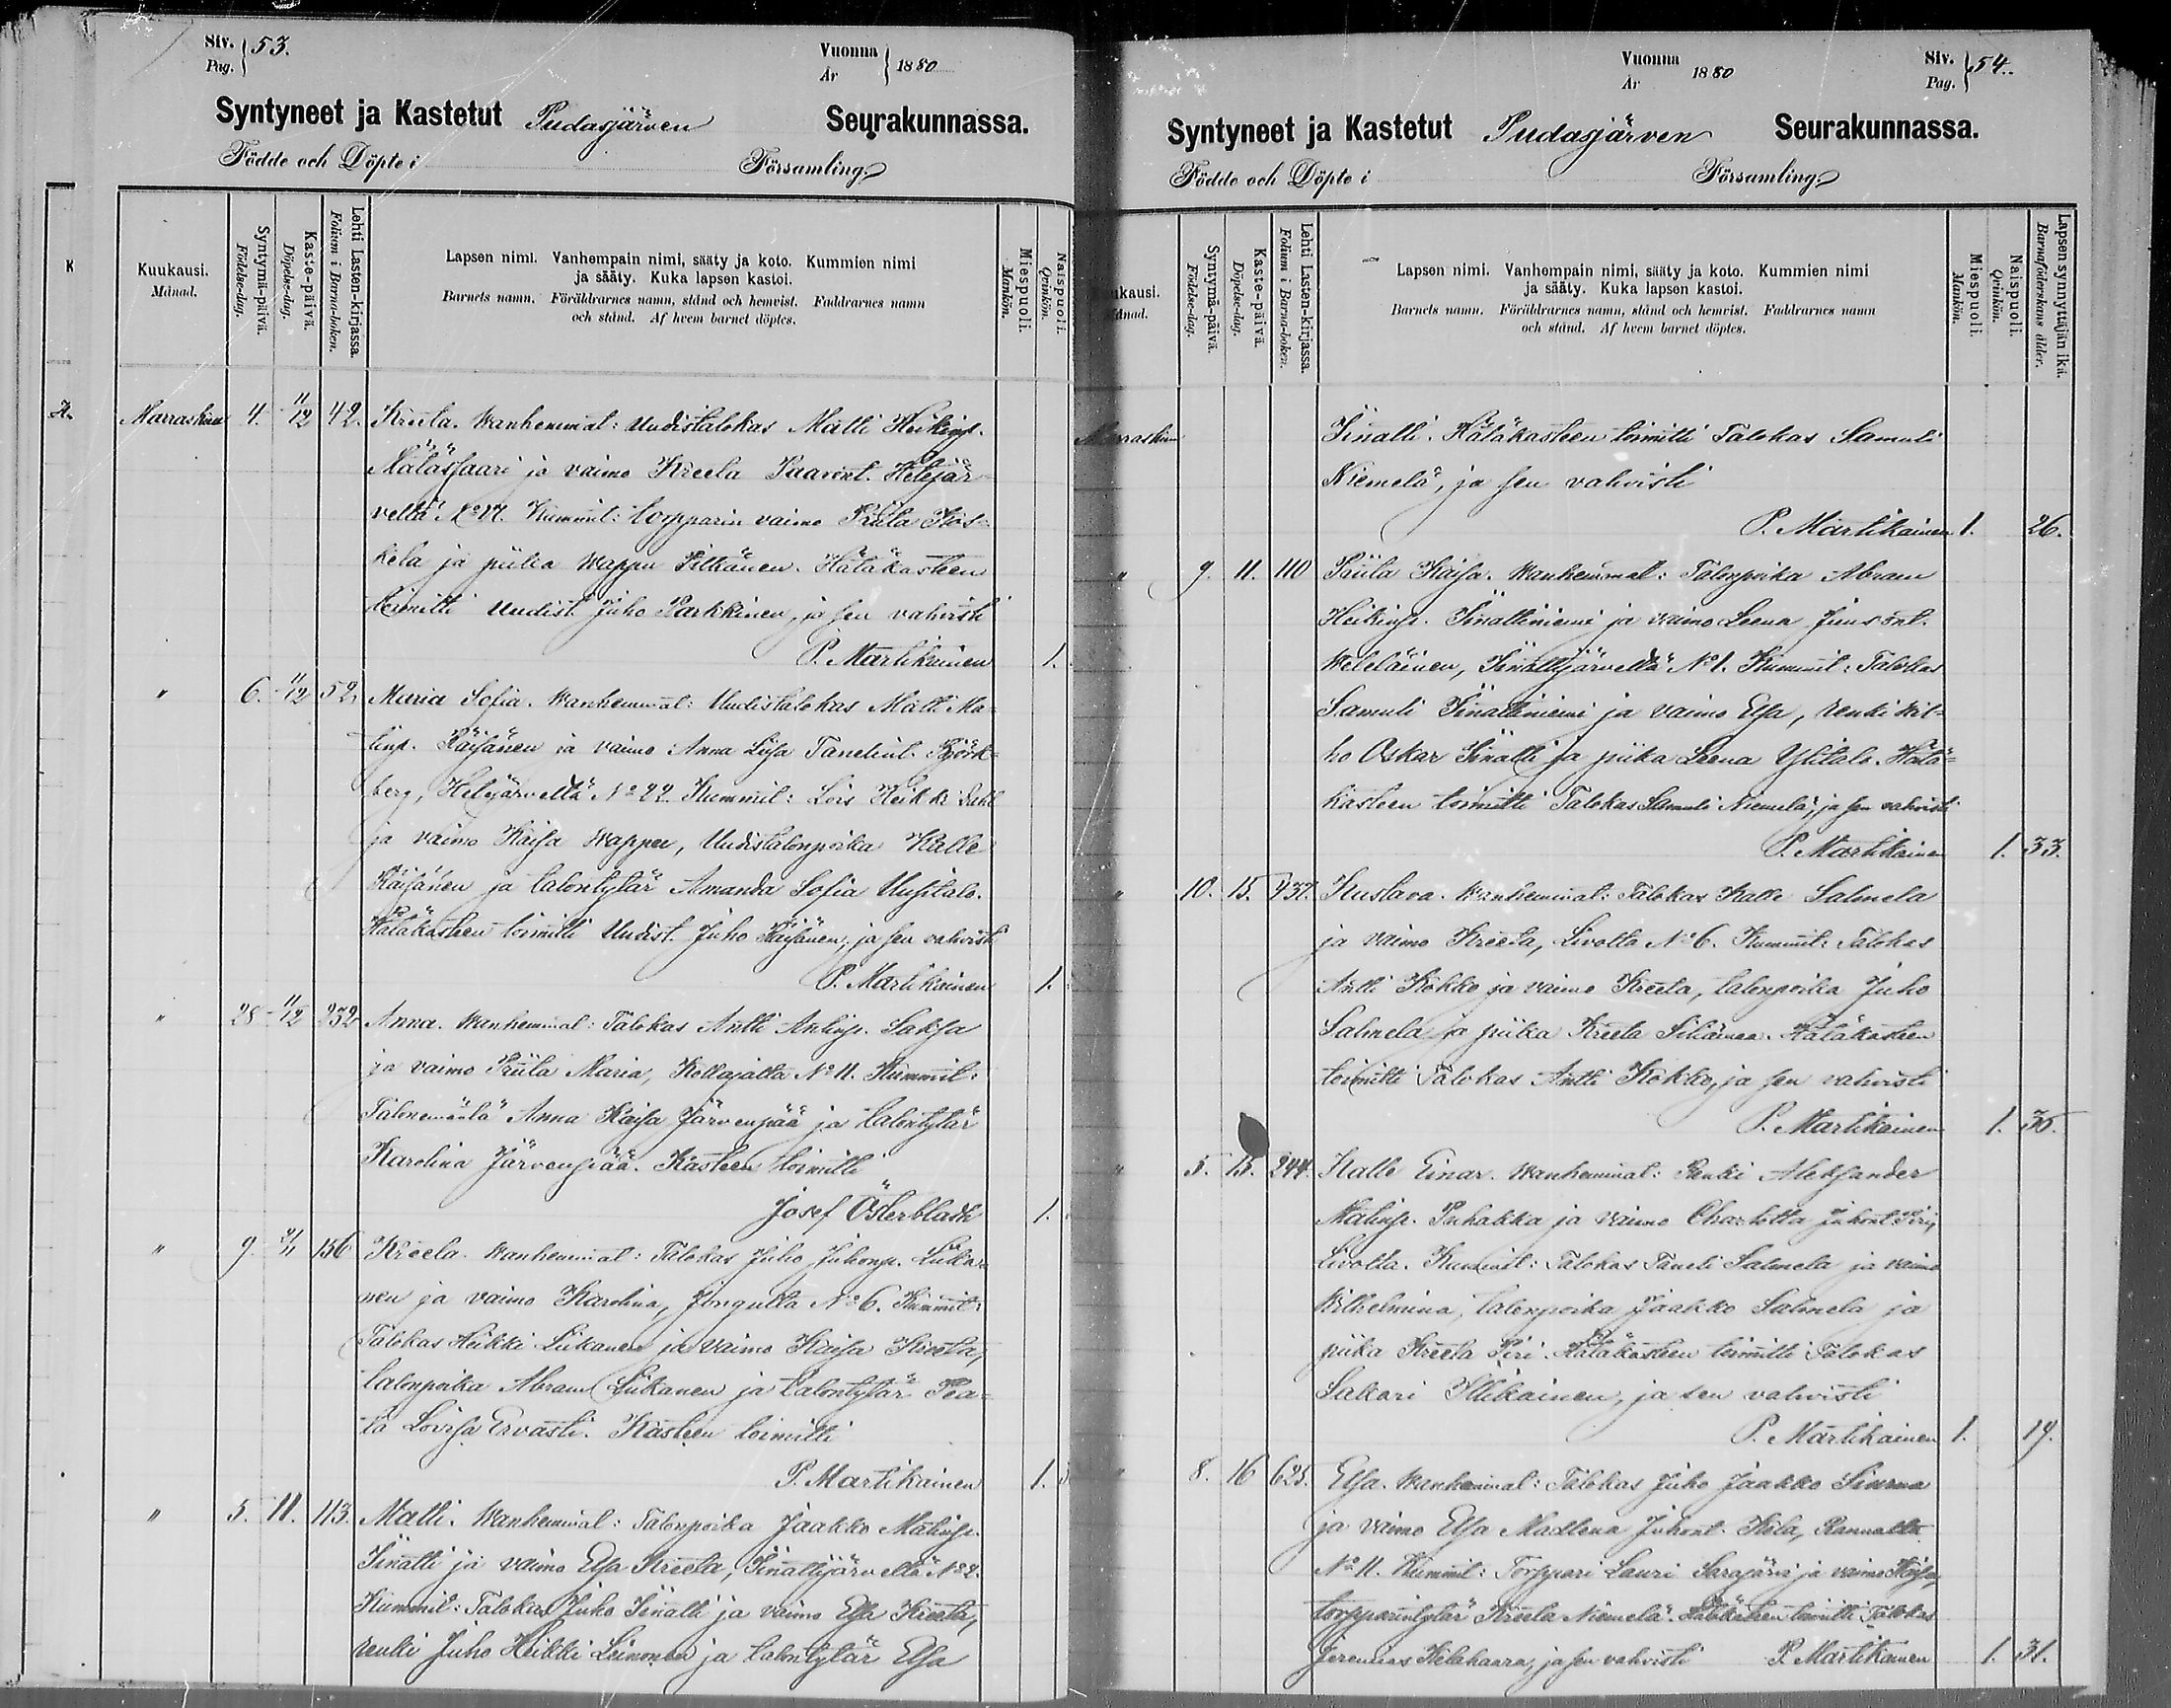 Siv. Pag. 53.
Vuonna År 1880
Syntyneet ja Kastetut Pudasjärven Seurakunnassa.
Födde och Döpte i Församling.
Kuukausi. Månad.
Syntymä-päivä. Födelse-dag.
Kaste-päivä. Döpelse-dag.
Lehti Lasten-kirjassa. Folium i Barna-boken.
Lapsen nimi. Vanhempain nimi, sääty ja koto. Kummien nimi
ja sääty. Kuka lapsen kastoi.
Barnets namn. Föräldrarnes namn, stånd och hemvist. Faddrarnes namn
och stånd. Af hvem barnet döptes.
Miespuoli. Mankön.
Naispuoli. Qvinkön.
Marraskuu 4. 11/12 42. Kreeta. Wanhemmat: Uudistalokas Matti Heikinp.
Mätässaari ja vaimo Kreeta Paavont. Hetejär-
veltä No 17. Kummit: torpparin vaimo Priita Kos-
kela ja piika Wappu Pitkänen. Hätäkasteen
toimitti Uudist. Juho Parkkinen, ja sen vahvisti
P. Martikainen 1.
" 6. 11/12 52. Maria Sofia. Wanhemmat: Uudistalokas Matti Ma-
tinp. Räisänen ja vaimo Anna Liisa Tanelint. Björk-
berg, Hetejärveltä No 22. Kummit: Lois Heikki Dahl
ja vaimo Kaisa Wappu, Uudistalonpoika Kalle
Räisänen ja talontytär Amanda Sofia Uusitalo.
Hätäkasteen toimitti Uudist. Juho Räisänen, ja sen vahvisti
P. Martikainen 1.
" 28 11/12 232 Anna. Wanhemmat: Talokas Antti Antinp. Saksa
ja vaimo Priita Maria, Kollajalta No 11. Kummit:
Talonemäntä Anna Kaisa Järvenpää ja talontytär
Karolina Järvenpää. Kasteen toimitti
Josef Österbladh 1.
" 9. 156 Kreeta. Wanhemmat: Talokas Juho Juhonp. Liika-
nen ja vaimo Karolina, Jongulta No 6. Kummit:
Talokas Heikki Liikanen ja vaimo Kaisa Kreeta,
talonpoika Abram Liikanen ja talontytär Pea-
ta Lovisa Ervasti. Kasteen toimitti
P. Martikainen 1.
" 5. 11. 113. Matti. Wanhemmat: Talonpoika Jaakko Matinp.
Iinatti ja vaimo Elsa Kreeta, Iinattijärveltä No 2.
Kummit: Talokas Juho Iinatti ja vaimo Elsa Kreeta,
renki Juho Heikki Leinonen ja talontytär Elsa
Vuonna År 1880
Siv. Pag. 54.
Syntyneet ja Kastetut Pudasjärven Seurakunnassa.
Födde och Döpte i Församling.
Syntymä-päivä. Födelse-dag.
Kaste-päivä. Döpelse-dag.
Lehti Lasten-kirjassa. Folium i Barna-boken.
Lapsen nimi. Vanhempain nimi, sääty ja koto. Kummien nimi
ja sääty. Kuka lapsen kastoi.
Barnets namn. Föräldrarnes namn, stånd och hemvist. Faddrarnes namn
och stånd. Af hvem barnet döptes.
Miespuoli. Mankön.
Naispuoli. Qvinkön.
Lapsen synnyttäjän ikä. Barnaföderskans ålder.
Marraskuu Iinatti. Hätäkasteen toimitti Talokas Samuli
Niemelä, ja sen vahvisti
P. Martikainen 1. 26.
" 9. 11. 110 Priita Kaisa. Wanhemmat: Talonpoika Abram
Heikinp. Iinattiniemi ja vaimo Leena Juusont.
Weteläinen, Iinattijärveltä No 1. Kummit: Talokas
Samuli Iinattiniemi ja vaimo Elsa, renki Wil-
ho Oskar Iinatti ja piika Leena Ylitalo. Hätä-
kasteen toimitti Talokas Samuli Niemelä, ja sen vahvisti
P. Martikainen 1. 33.
" 10. 15. 437. Kustava. Wanhemmat: Talokas Kalle Salmela
ja vaimo Kreeta, Livolta No 6. Kummit: Talokas
Antti Kokko ja vaimo Kreeta, talonpoika Juho
Salmela ja piika Kreeta Siliämaa. Hätäkasteen
toimitti Talokas Antti Kokko, ja sen vahvisti
P. Martikainen 1. 36.
" 5. 15. 244. Kalle Einar. Wanhemmat: Renki Aleksander
Matinp. Puhakka ja vaimo Charlotta Juhont. Piri,
Livolta. Kummit: Talokas Taneli Salmela ja vaimo
Wilhelmina, talonpoika Jaakko Salmela ja
piika Kreeta Piri. Hätäkasteen toimitti Talokas
Sakari Illikainen, ja sen vahvisti
P. Martikainen 1. 19.
" 8. 16 625. Elsa. Wanhemmat: Talokas Juho Jaakko Siurua
ja vaimo Elsa Madlena Juhont. Kela, Rannalta
No 11. Kummit: Torppari Lauri Sarajärvi ja vaimo Kaisa,
torpparintytär Kreeta Niemelä. Hätäkasteen toimitti Talokas
Jeremias Kelahaara, ja sen vahvisti P. Martikainen 1. 31.